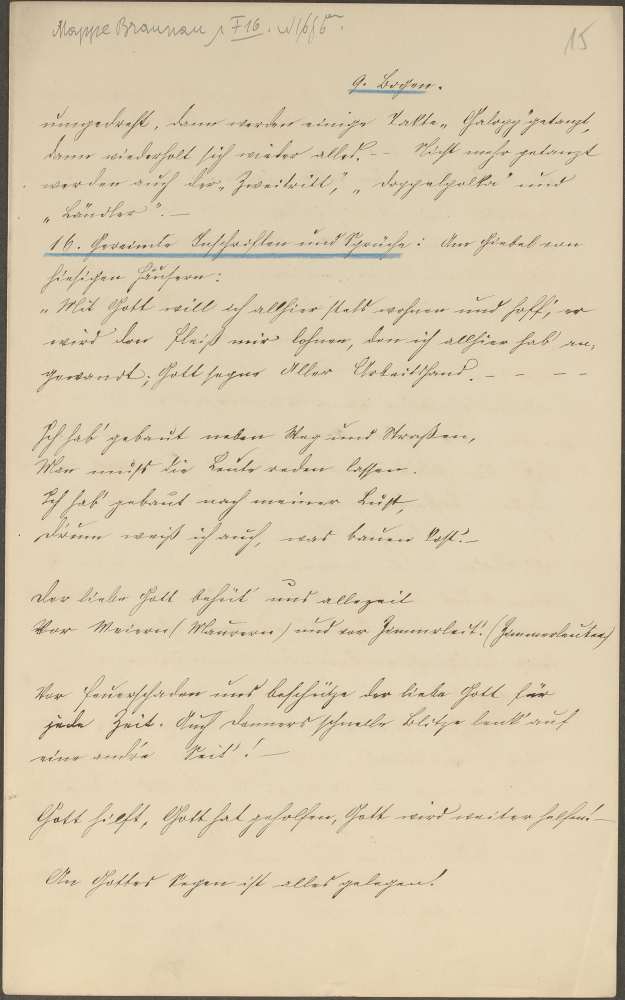 Mappe Braunau, F 16.
15
9. Bogen.
umgedreht, dann werden einige Takte „Galopp" getanzt,
dann wiederholt sich wieder alles. -- Nicht mehr getanzt
werden auch der „Zweitritt", „Doppelpolka" und
„Ländler". —
16. Gereimte Inschriften und Sprüche: Am Giebel von
hiesigen Häusern:
„Mit Gott will ich allhier stets wohnen und hoff', er
wird den Fleiß mir lohnen, den ich allhier hab' an-
gewandt; Gott segne Aller Arbeitshand. - - - -
Ich hab' gebaut neben Weg und Straßen,
Man muß die Leute reden lassen.
Ich hab' gebaut nach meiner Lust,
Drum weiß ich auch, was bauen kost'. —
Der liebe Gott behüt' uns allezeit
Vor Meiern (Maurern) und vor Zimmerleit'. (Zimmerleuten)
Vor Feuerschaden uns beschütze der liebe Gott für
jede Zeit. Auch Donners schnelle Blitze lenk' auf
eine andre Seit'! —
Gott hilft, Gott hat geholfen, Gott wird weiter helfen! —
An Gottes Segen ist alles gelegen!